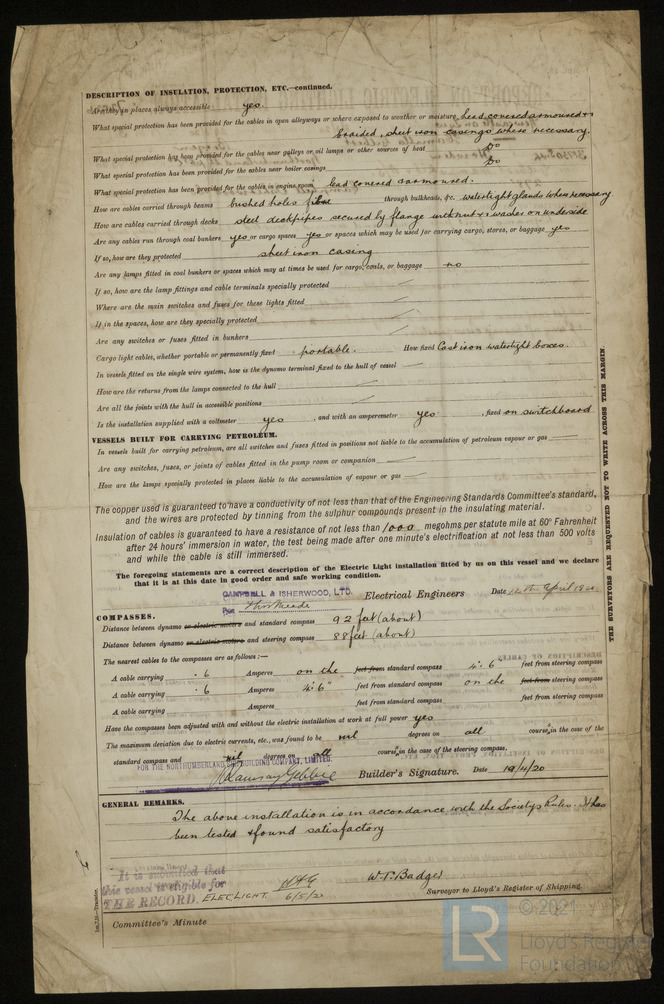 DESCRIPTION OF INSULATION, PROTECTION, ETC.—continued.
Are they in places always accessible yes.
What special protection has been provided for the cables in open alleyways or where exposed to weather or moisture, lead covered armoured &
braided, sheet iron casings where necessary.
What special protection has been provided for the cables near galleys or oil lamps or other sources of heat Do
What special protection has been provided for the cables near boiler casings Do
What special protection has been provided for the cables in engine room lead covered & armoured.
How are cables carried through beams bushed holes through bulkheads, &c. watertight glands where necessary
How are cables carried through decks steel deckpipes secured by flange with nuts & washers on underside
Are any cables run through coal bunkers yes or cargo spaces yes or spaces which may be used for carrying cargo, stores, or baggage yes
If so, how are they protected sheet iron casing
Are any lamps fitted in coal bunkers or spaces which may at times be used for cargo, coals, or baggage no
If so, how are the lamp fittings and cable terminals specially protected
Where are the main switches and fuses for these lights fitted
If in the spaces, how are they specially protected
Are any switches or fuses fitted in bunkers
Cargo light cables, whether portable or permanently fixed portable. How fixed Cast iron watertight boxes.
In vessels fitted on the single wire system, how is the dynamo terminal fixed to the hull of vessel
How are the returns from the lamps connected to the hull
Are all the joints with the hull in accessible positions
Is the installation supplied with a voltmeter yes, and with an amperemeter yes, fixed on switchboard
VESSELS BUILT FOR CARRYING PETROLEUM.
In vessels built for carrying petroleum, are all switches and fuses fitted in positions not liable to the accumulation of petroleum vapour or gas
Are any switches, fuses, or joints of cables fitted in the pump room or companion
How are the lamps specially protected in places liable to the accumulation of vapour or gas
The copper used is guaranteed to have a conductivity of not less than that of the Engineering Standards Committee's standard,
and the wires are protected by tinning from the sulphur compounds present in the insulating material.
Insulation of cables is guaranteed to have a resistance of not less than 1000 megohms per statute mile at 60° Fahrenheit
after 24 hours' immersion in water, the test being made after one minute's electrification at not less than 500 volts
and while the cable is still immersed.
The foregoing statements are a correct description of the Electric Light installation fitted by us on this vessel and we declare
that it is at this date in good order and safe working condition.
CAMPBELL & ISHERWOOD, LTD.
Electrical Engineers Date April 1920
COMPASSES.
Distance between dynamo or electric motors and standard compass 92 feet (about)
Distance between dynamo or electric motors and steering compass 88 feet (about)
The nearest cables to the compasses are as follows:—
A cable carrying .6 Amperes on the feet from standard compass 4'.6" feet from steering compass
A cable carrying .6 Amperes 4'.6" feet from standard compass on the feet from steering compass
A cable carrying Amperes feet from standard compass feet from steering compass
Have the compasses been adjusted with and without the electric installation at work at full power yes
The maximum deviation due to electric currents, etc., was found to be nil degrees on all course, in the case of the
standard compass and nil degrees on all course, in the case of the steering compass.
FOR THE NORTHUMBERLAND SHIPBUILDING COMPANY, LIMITED.
Builder's Signature. Date 19/4/20
GENERAL REMARKS.
The above installation is in accordance with the Societys Rules. It has
been tested & found satisfactory
W. T. Badger
Surveyor to Lloyd's Register of Shipping
It is submitted that
this vessel is eligible for
THE RECORD. ELEC LIGHT. 6/5/20
Committee's Minute
THE SURVEYORS ARE REQUESTED NOT TO WRITE ACROSS THIS MARGIN.
LR
© 2021
Lloyd's Register
Foundation